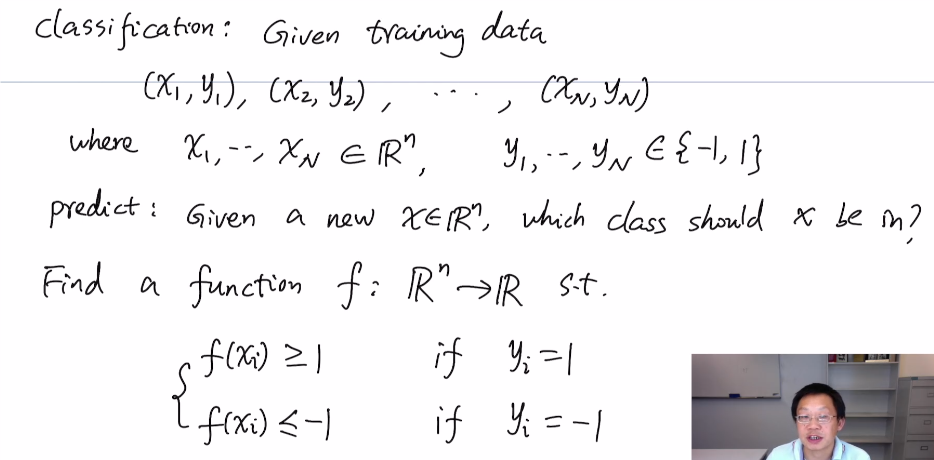 Classification: Given training data
(x₁, y₁), (x₂, y₂), ..., (x_N, y_N)
where x₁, --, x_N ∈ ℝⁿ, y₁, --, y_N ∈ {-1, 1}
predict: Given a new x∈ℝⁿ, which class should x be in?
Find a function f: ℝⁿ→ℝ s.t.
{ f(xᵢ) ≥ 1 if yᵢ = 1
f(xᵢ) ≤ -1 if yᵢ = -1